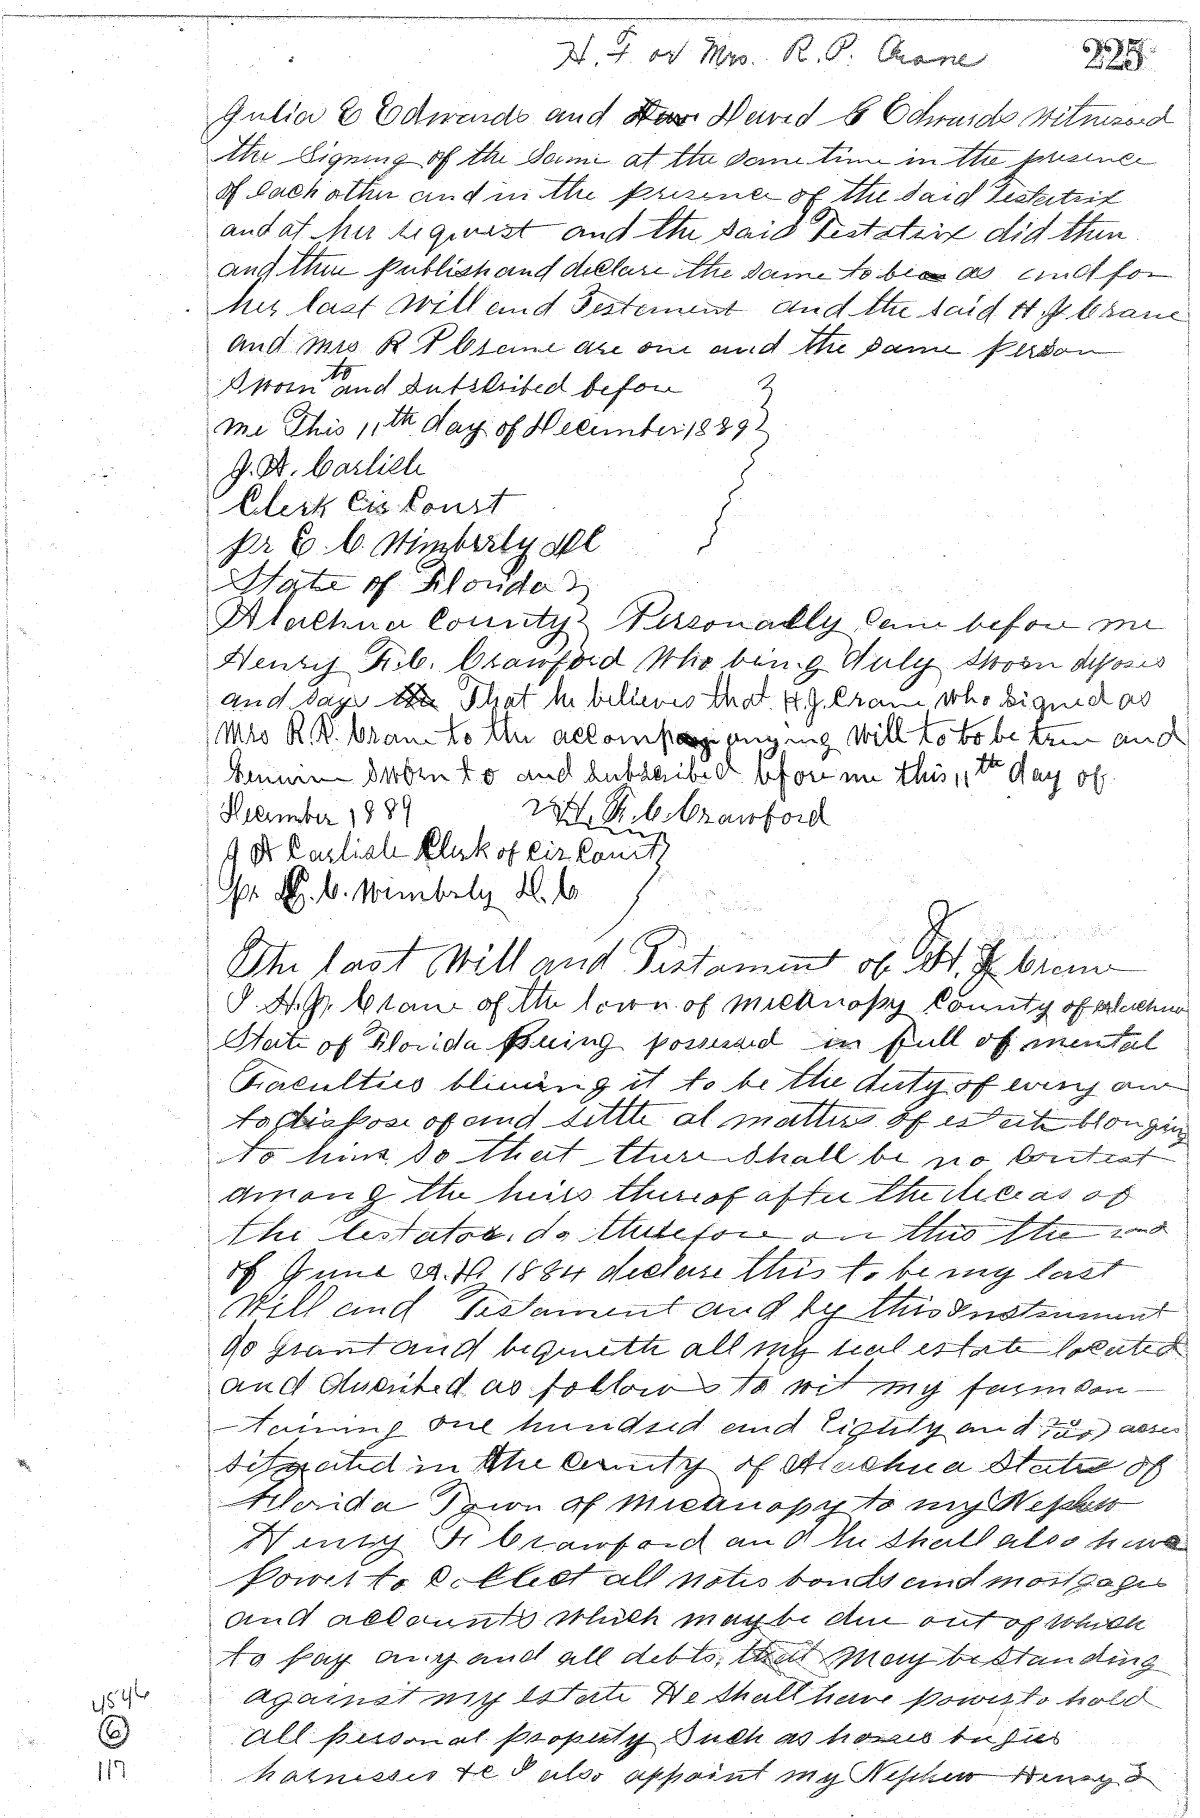 H. F. or Mrs. R. P. Crane 225
Julia E Edwards and David G Edwards witnessed
the Signing of the Same at the same time in the presence
of each other and in the presence of the said Testatrix
and at her request and the said Testatrix did then
and then publish and declare the same to be as and for
her last Will and Testement and the said H. J Crane
and Mrs R P Crane are one and the same person
Sworn to and subscribed before
me This 11th day of December 1889
J. A. Carlisle
Clerk Cir Court
pr E. C. Wimberly DC
State of Florida
Alachua County Personally Came before me
Henry F. C. Crawford Who being duly sworn deposes
and says That he believes that H. J. Crane, who signed as
Mrs R. P. Crane to the accompanying Will to to be true and
Genuine Sworn to and subscribed before me this 11th day of
December 1889 H. F. C. Crawford
J A Carlisle Clerk of Cir Court
pr E. C. Wimberly D. C
The last Will and Testament of H. J Crane
I H. J. Crane of the town of Micanopy County of Alachua
State of Florida Being possessed in full of mental
Faculties bliveing it to be the duty of every one
to dispose of and settle al matters of estate blonging
to him. So that there shall be no Contest
among the heirs thereof after the deceas of
the testator. do therefore on this the 2nd
of June A.D. 1884 declare this to be my last
Will and Testament and by this Instrument
do grant and bequeth all my real estate located
and discribed as follows to wit my farm con-
-taining one hundred and Eighty and 20/100) acres
situated in the County of Alachua State of
Florida Town of Micanopy to my Nephew
Henry F Crawford and he shall also have
power to Collect all notes bonds and mortgages
and accounts which may be due out of which
to pay any and all debts, that may be standing
against my estate He shall have power to hold
all personal property Such as horses bugies
harnesses &c I also appoint my Nephew Henry F
4546
6
117